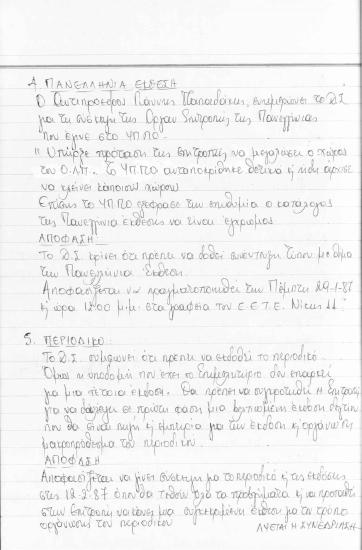 4. ΠΑΝΕΛΛΗΝΙΑ ΕΚΘΕΣΗ
Ο Αντιπρόεδρος Γιάννης Παπαδάκης, ενημερώνει το Δ.Σ
για τη συσκεψη της Οργαν. Επιτροπης της Πανελληνιας
που εγινε στο ΥΠΠΟ.
"Υπήρξε πρόταση της επιτροπης να μεγαλώσει ο χώρος
του Ο.Λ.Π. Το ΥΠΠΟ ανταποκρίθηκε θετικα ή ήδη άρχισε
να κλείνει κάποιους χώρους
Επίσης το ΥΠΠΟ εξέφρασε την επιθυμία ο κατάλογος
της Πανελλήνια έκθεσης να είναι έγχρωμος.
ΑΠΟΦΑΣΗ
Το Δ.Σ κρίνει ότι πρέπει να δοθεί συνεντευξη Τύπου με θεμα
την Πανελλήνια Έκθεση.
Αποφασίζεται να πραγματοποιηθεί την Πέμπτη 29-1-87
ή ώρα 12.00 μ.μ. στα γραφεία του Ε.Ε.Τ.Ε. Νίκης 11
5. ΠΕΡΙΟΔΙΚΟ
Το Δ.Σ. συμφωνει ότι πρέπει να εκδοθεί το περιοδικό.
Όμως η υποδομή που έχει το Επιμελητήριο δεν επαρκεί
για μια τέτοια έκδοση. Θα πρέπει να συγκροτηθεί η Επιτροπή
για να διαλεξει σε πρώτη φαση μια έκδοση
που θα είναι πηγή ή εμπειρία για την έκδοση ή οργάνωση
μακροπρόθεσμα του περιοδικου.
ΑΠΟΦΑΣΗ
Αποφασίζεται να γίνει σύσκεψη για το περιοδικό ή τις εκδόσεις
στις 18-2-87 όπου θα τεθουν όλα τα προβλήματα ή να προταθεί
στην επιτροπή να κάνει μια συγκεκριμένη εισήγηση για τον τρόπο
οργάνωσης του περιοδικου
ΛΥΕΤΑΙ Η ΣΥΝΕΔΡΙΑΣΗ